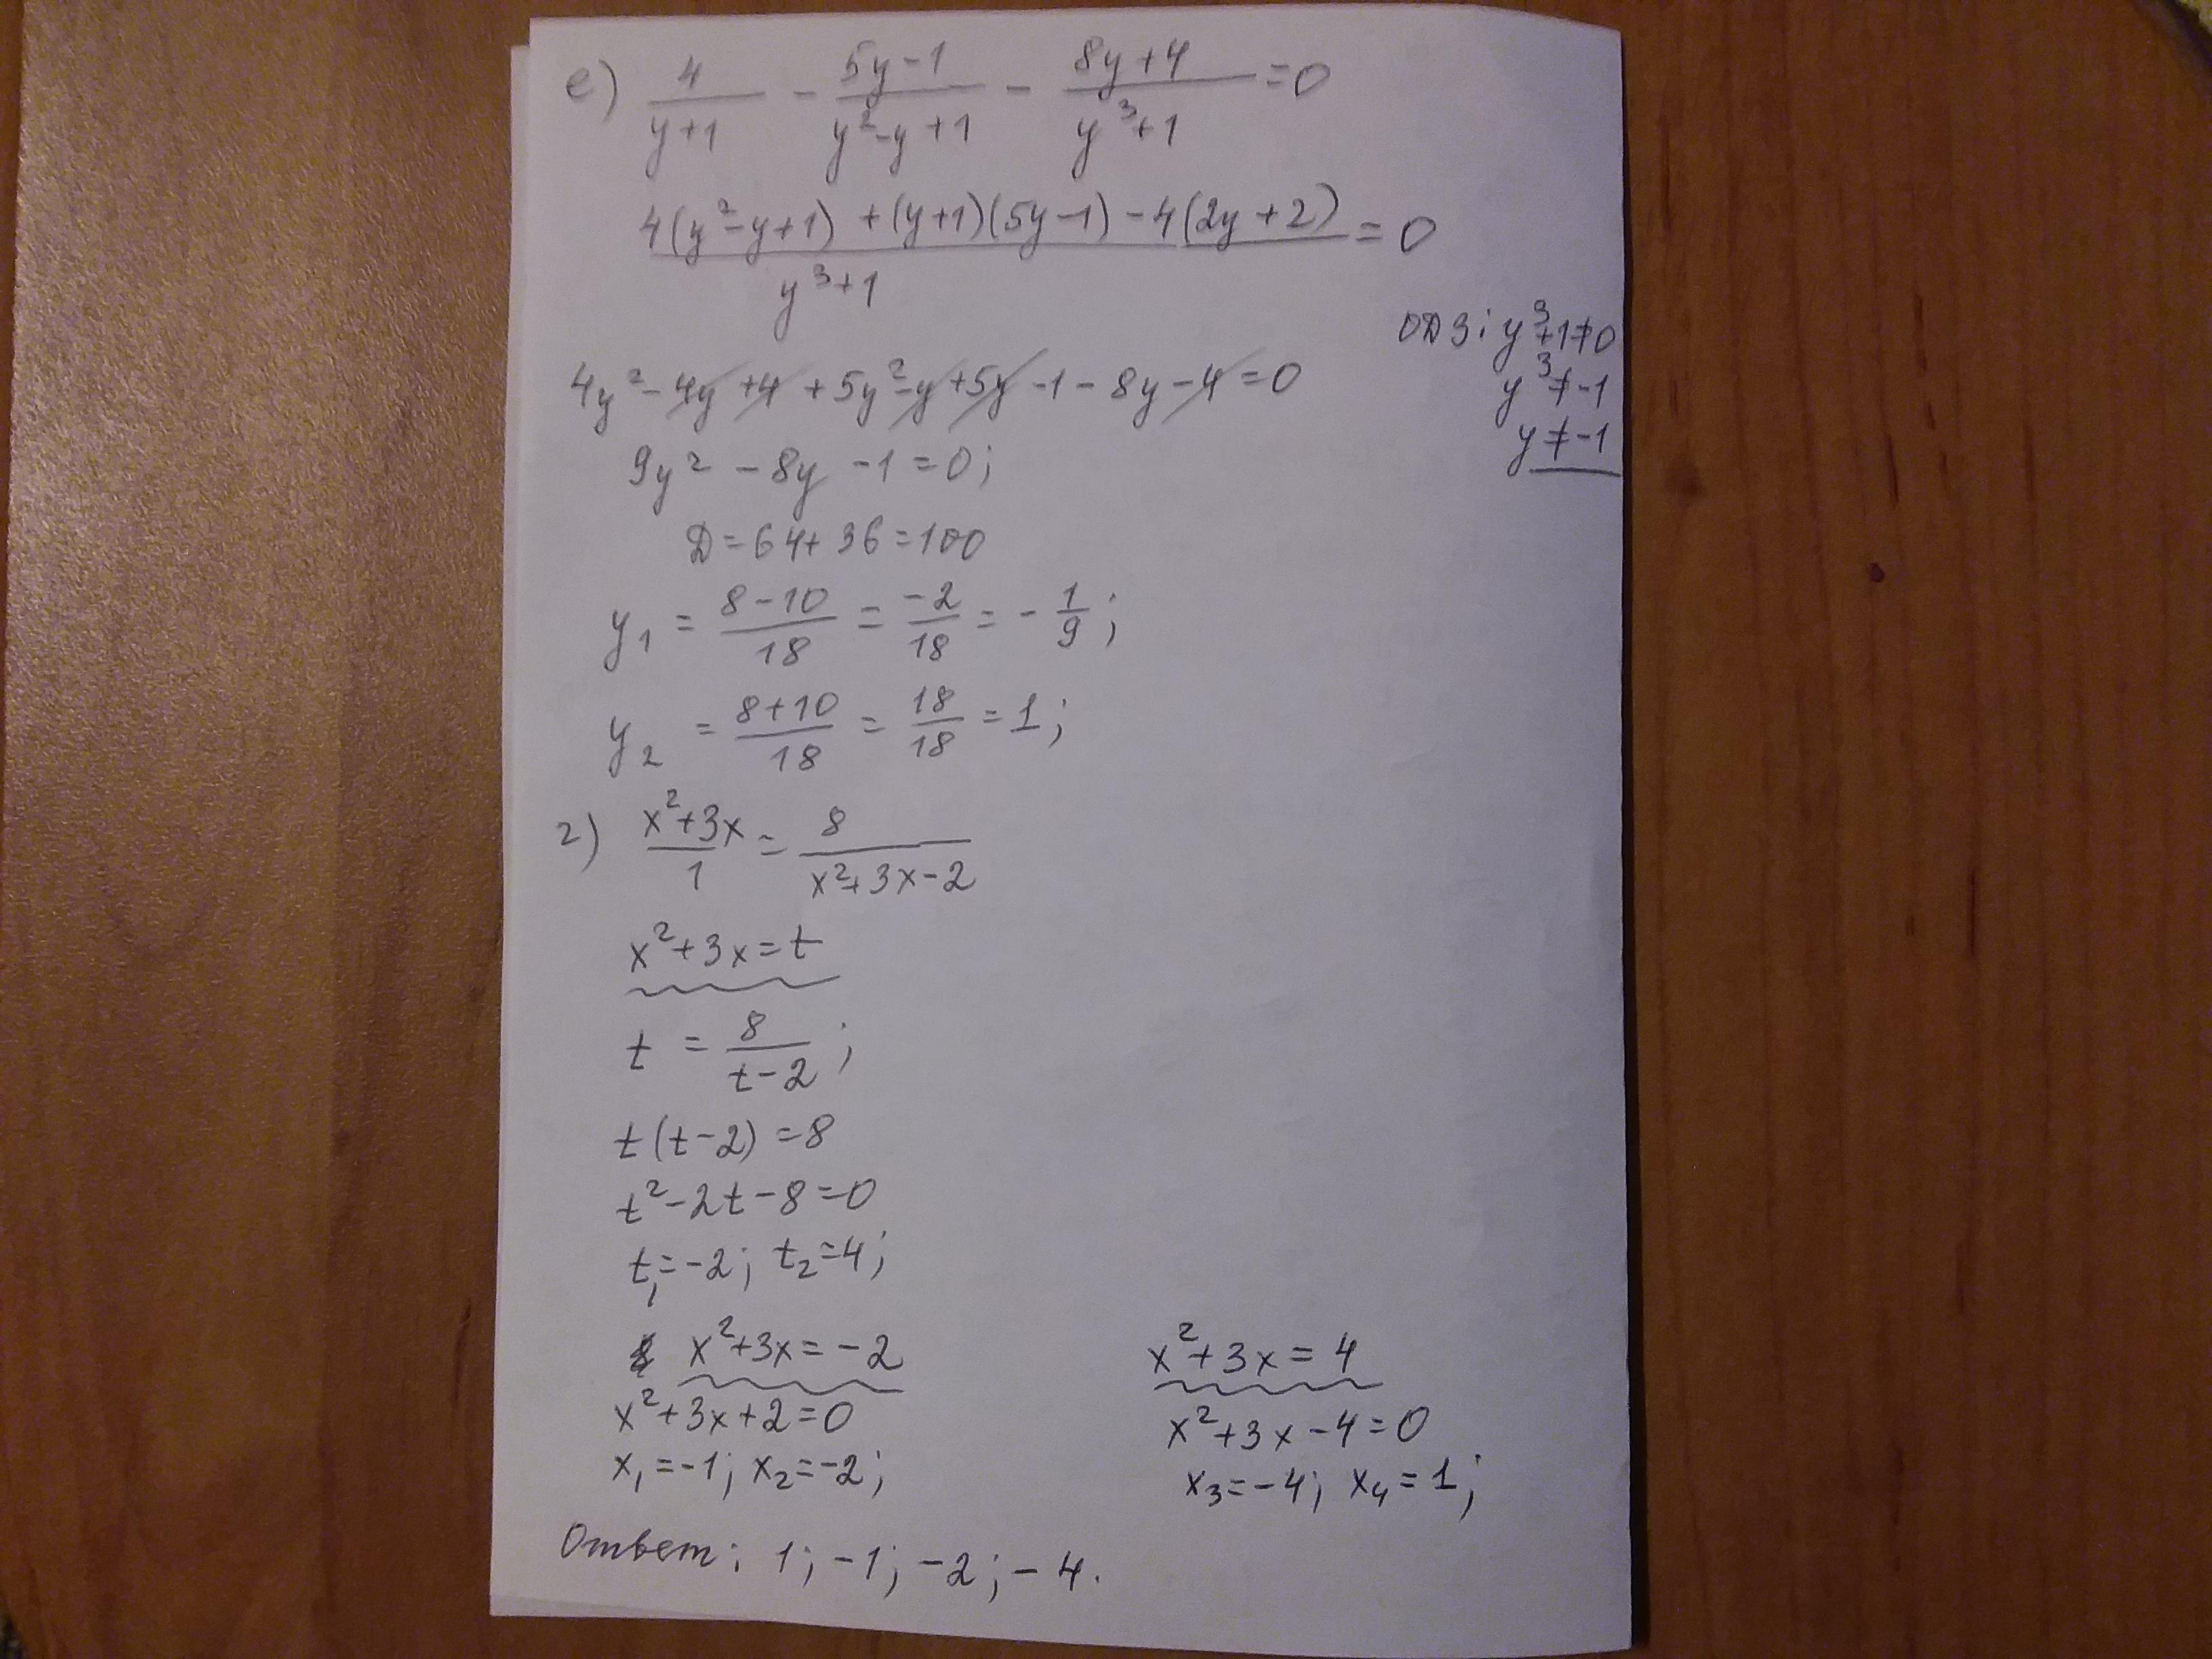 е) 4/(y+1) - (5y-1)/(y²-y+1) - (8y+4)/(y³+1) = 0
(4(y²-y+1) + (y+1)(5y-1) - 4(2y+2))/(y³+1) = 0
ОДЗ: y³+1≠0
y³≠-1
y≠-1
4y² - 4y + 4 + 5y² - y + 5y - 1 - 8y - 4 = 0
9y² - 8y - 1 = 0;
D = 64 + 36 = 100
y₁ = (8-10)/18 = -2/18 = -1/9;
y₂ = (8+10)/18 = 18/18 = 1;
г) (x²+3x)/1 = 8/(x²+3x-2)
x²+3x = t
t = 8/(t-2);
t(t-2) = 8
t²-2t-8=0
t₁=-2; t₂=4;
x²+3x=-2
x²+3x+2=0
x₁=-1; x₂=-2;
x²+3x=4
x²+3x-4=0
x₃=-4; x₄=1;
Ответ: 1; -1; -2; -4.